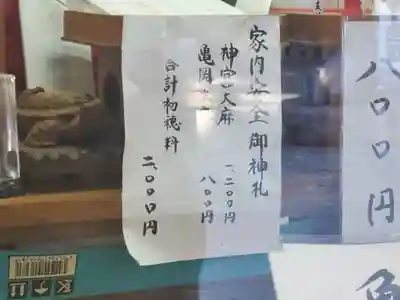 家内安全御神札
神宮大麻 一、二〇〇円
亀岡 八〇〇円
合計初穂料 二、〇〇〇円
八〇〇円